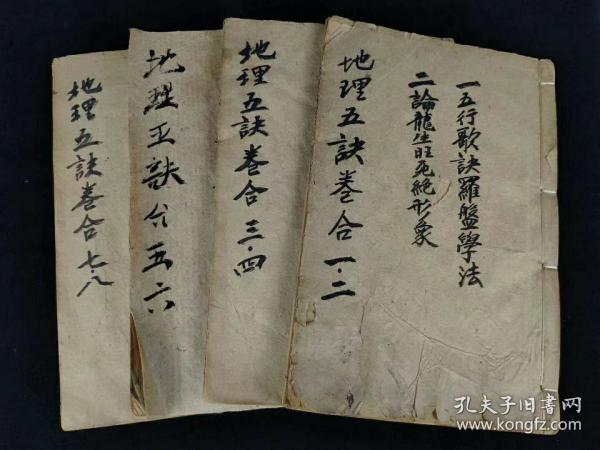 一五行歌訣羅盤學法
二論龍生旺死絕形象
地理五訣卷合一·二
地理五訣卷合三·四
地理五訣合五六
地理五訣卷合七·八
孔夫子旧書网
www.kongfz.com